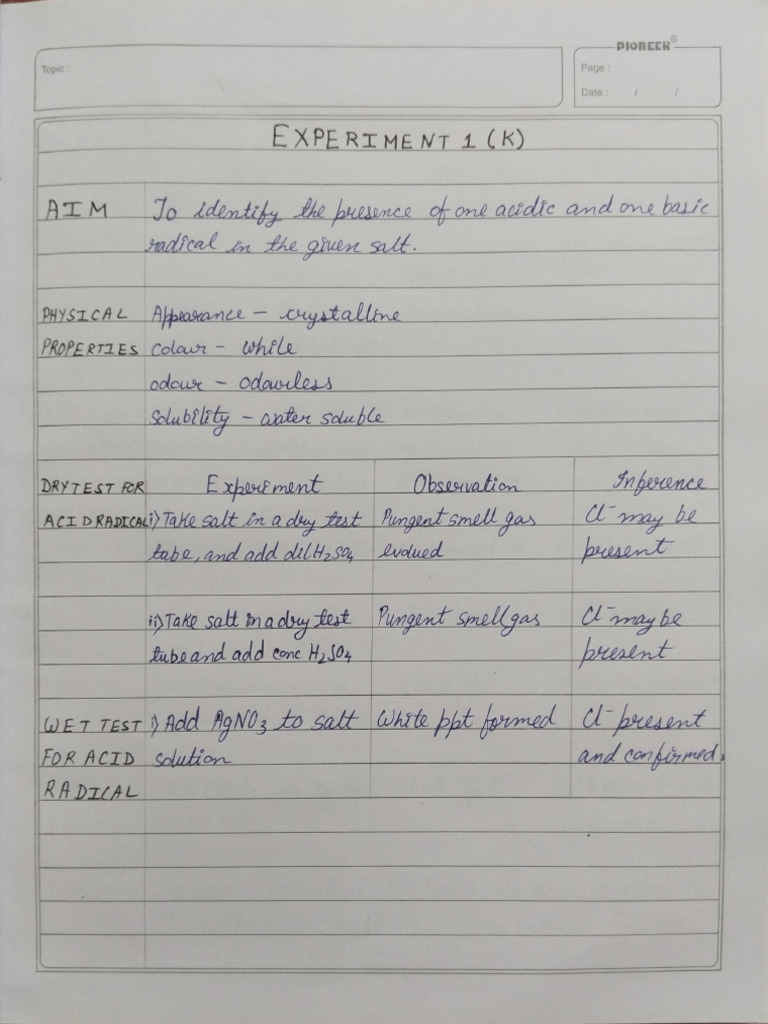 PIONEER®
Topic :
Page :
Date : / /
EXPERIMENT 1 (K)
AIM To identify the presence of one acidic and one basic
radical in the given salt.
PHYSICAL Appearance - crystalline
PROPERTIES Colour - while
odour - odourless
Solubility - water soluble
DRY TEST FOR Experiment Observation Inference
ACID RADICAL i) Take salt in a dry test Pungent smell gas Cl⁻ may be
tube, and add dil H₂SO₄ evolved present
ii) Take salt in a dry test Pungent smell gas Cl⁻ may be
tube and add conc H₂SO₄ present
WET TEST i) Add AgNO₃ to salt White ppt formed Cl⁻ present
FOR ACID solution and confirmed.
RADICAL